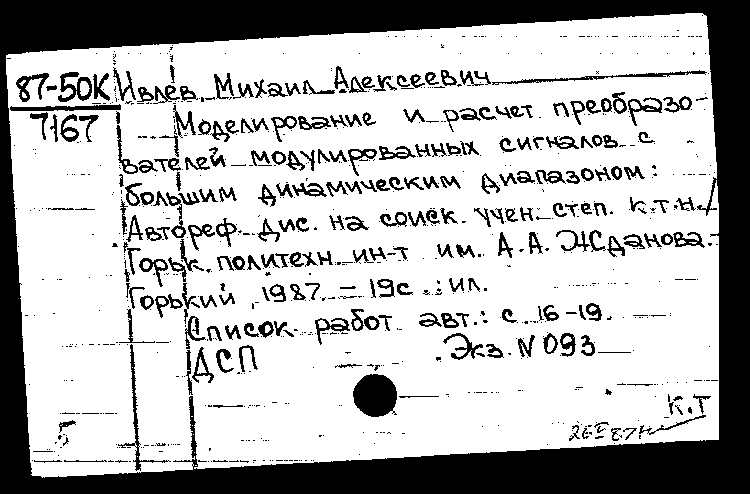 87-50К Ивлев, Михаил Алексеевич
7167 Моделирование и расчет преобразо-
вателей модулированных сигналов с
большим динамическим диапазоном:
Автореф. дис. на соиск. учен. степ. к.т.н./
Горьк. политехн. ин-т им. А.А. Жданова.-
Горький, 1987. - 19с.: ил.
Список работ авт.: с. 16-19.
ДСП Экз. N 093
К.Т
5